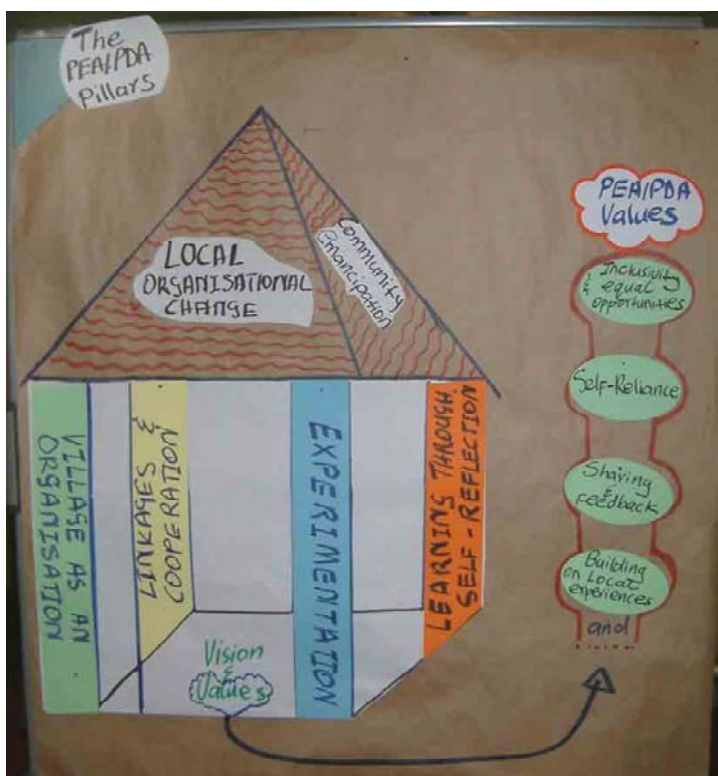 The
PEA/PDA
Pillars
LOCAL
ORGANISATIONAL
CHANGE
Community
emancipation
VILLAGE AS AN
ORGANISATION
LINKAGES &
COOPERATION
EXPERIMENTATION
LEARNING THROUGH
SELF-REFLECTION
Vision
&
Values
PEA/PDA
Values
Inclusivity
& equal
opportunities
Self-Reliance
Sharing
&
Feedback
Building
on Local
experiences
and